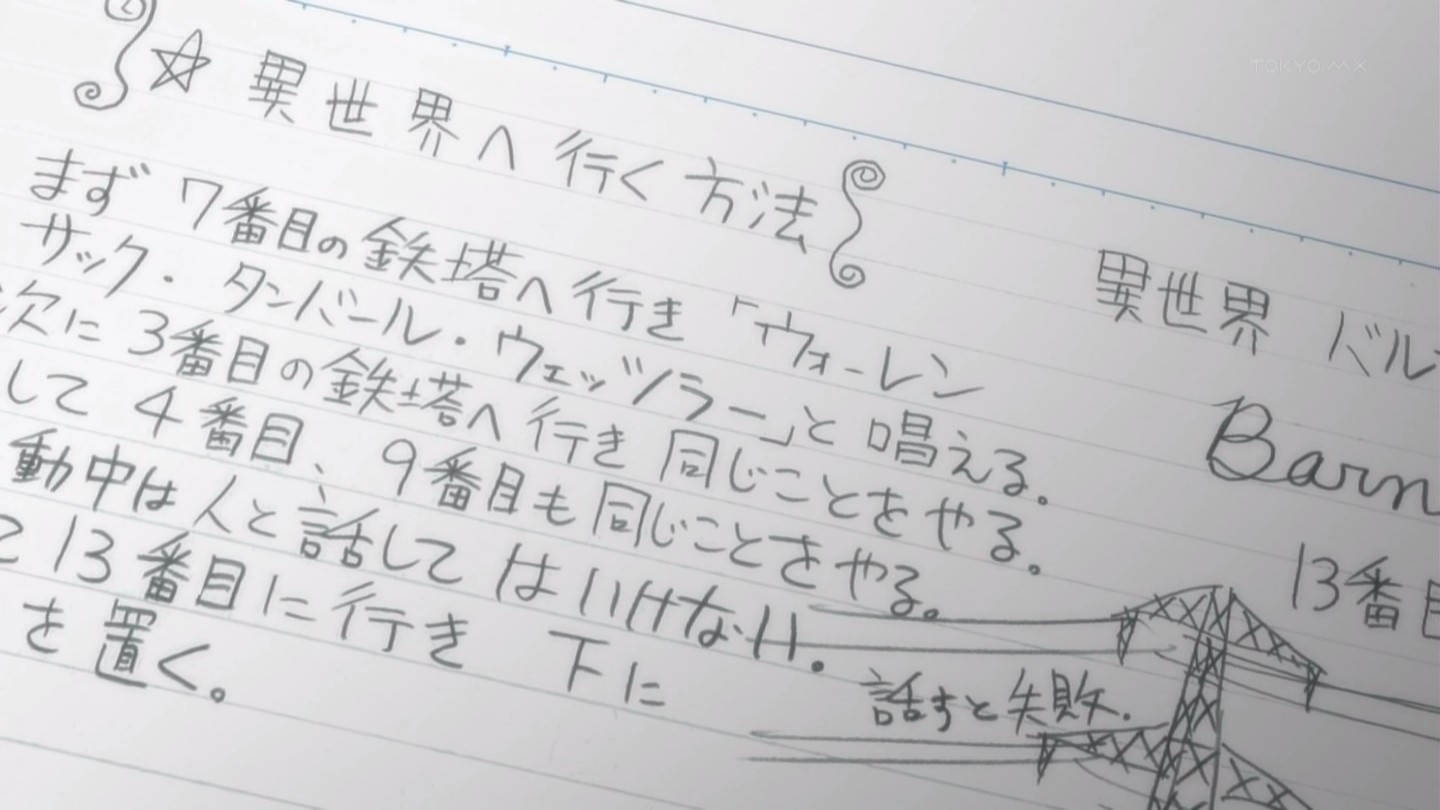 TOKYO MX
☆異世界へ行く方法
まず 7番目の鉄塔へ行き「ウォーレン
サック・タンバール・ウェッツラー」と唱える。
次に 3番目の鉄塔へ行き 同じことをやる。
して 4番目、9番目も同じことをやる。
動中は人と話して はいけない。
と 13番目に行き 下に
を置く。
異世界 バル
Barn
13番目
話すと失敗.